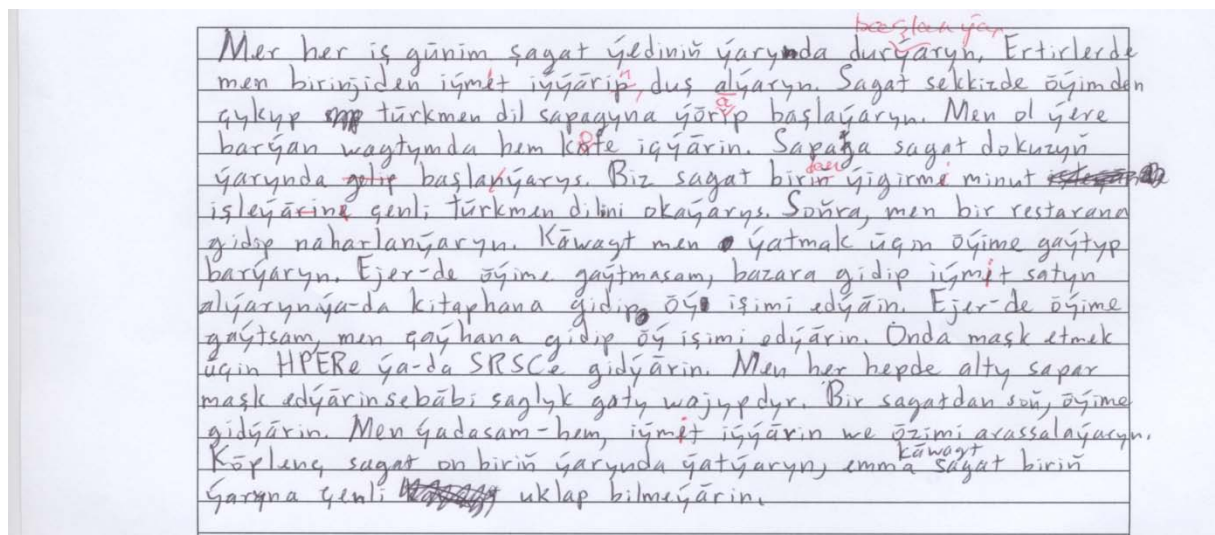 başlanýar
Mer her iş günim sagat ýediniň ýarynda durýaryn. Ertirlerde
men birinjiden iýmit iýýärin, duş alýaryn. Sagat sekkizde öýimden
çykyp türkmen dil sapagyna ýöräp başlaýaryn. Men ol ýere
barýan wagtymda hem kofe içýärin. Sapaga sagat dokuzyň
ýarynda gelip başlanýarys. Biz sagat birden ýigirmi minut
işleýärine çenli türkmen dilini okaýarys. Soňra, men bir restarana
gidip naharlanýaryn. Käwagt men ýatmak üçin öýime gaýtyp
barýaryn. Ejer-de öýime gaýtmasam, bazara gidip iýmit satyn
alýarynýa-da kitaphana gidip öý işimi edýäin. Ejer-de öýime
gaýtsam, men çaýhana gidip öý işimi edýärin. Onda maşk etmek
üçin HPERe ýa-da SRSCe gidýärin. Men her hepde alty sapar
maşk edýärinsebäbi saglyk gaty wajypdyr. Bir sagatdan soň, öýime
gidýärin. Men gadasam-hem, iýmit iýýärin we özimi arassalaýaryn.
Köplenç sagat on biriň ýarynda ýatýaryn, emma käwagt sagat biriň
ýaryna çenli uklap bilmeýärin.